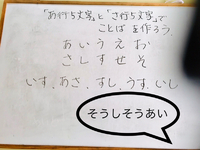 「あ行5文字」と「さ行5文字」で
ことばを作ろう
あいうえお
さしすせそ
いす、あさ、すし、うす、いし
そうしそうあい